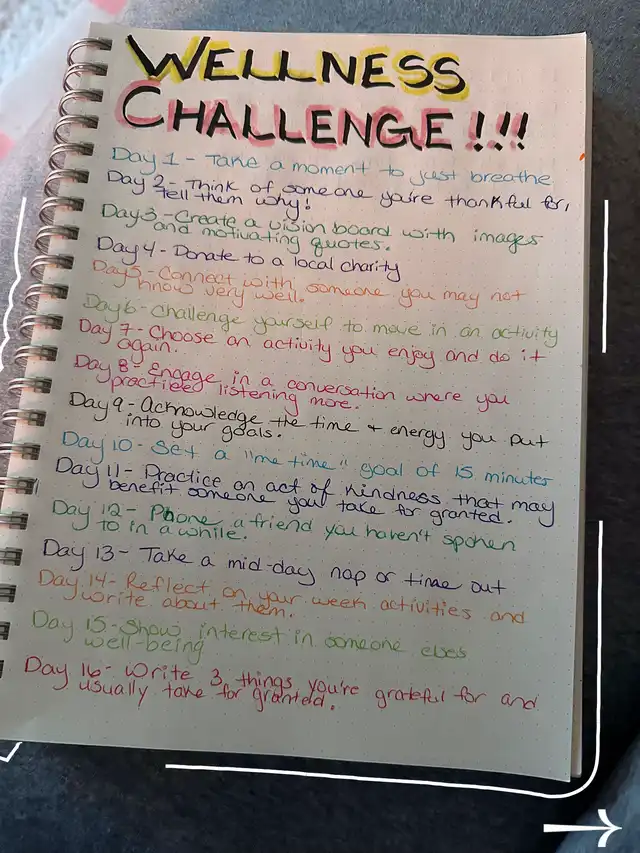 WELLNESS
CHALLENGE!!!
Day 1 - Take a moment to just breathe
Day 2 - Think of someone you're thankful for,
tell them why!
Day 3 - Create a vision board with images
and motivating quotes.
Day 4 - Donate to a local charity
Day 5 - Connect with someone you may not
know very well.
Day 6 - Challenge yourself to move in an activity
Day 7 - Choose an activity you enjoy and do it
again.
Day 8 - Engage in a conversation where you
practiced listening more.
Day 9 - Acknowledge the time + energy you put
into your goals.
Day 10 - Set a "me time" goal of 15 minutes
Day 11 - Practice an act of kindness that may
benefit someone you take for granted.
Day 12 - Phone a friend you haven't spoken
to in a while.
Day 13 - Take a mid-day nap or time out
Day 14 - Reflect on your week activities and
write about them.
Day 15 - Show interest in someone elses
well-being
Day 16 - Write 3 things you're grateful for and
usually take for granted.